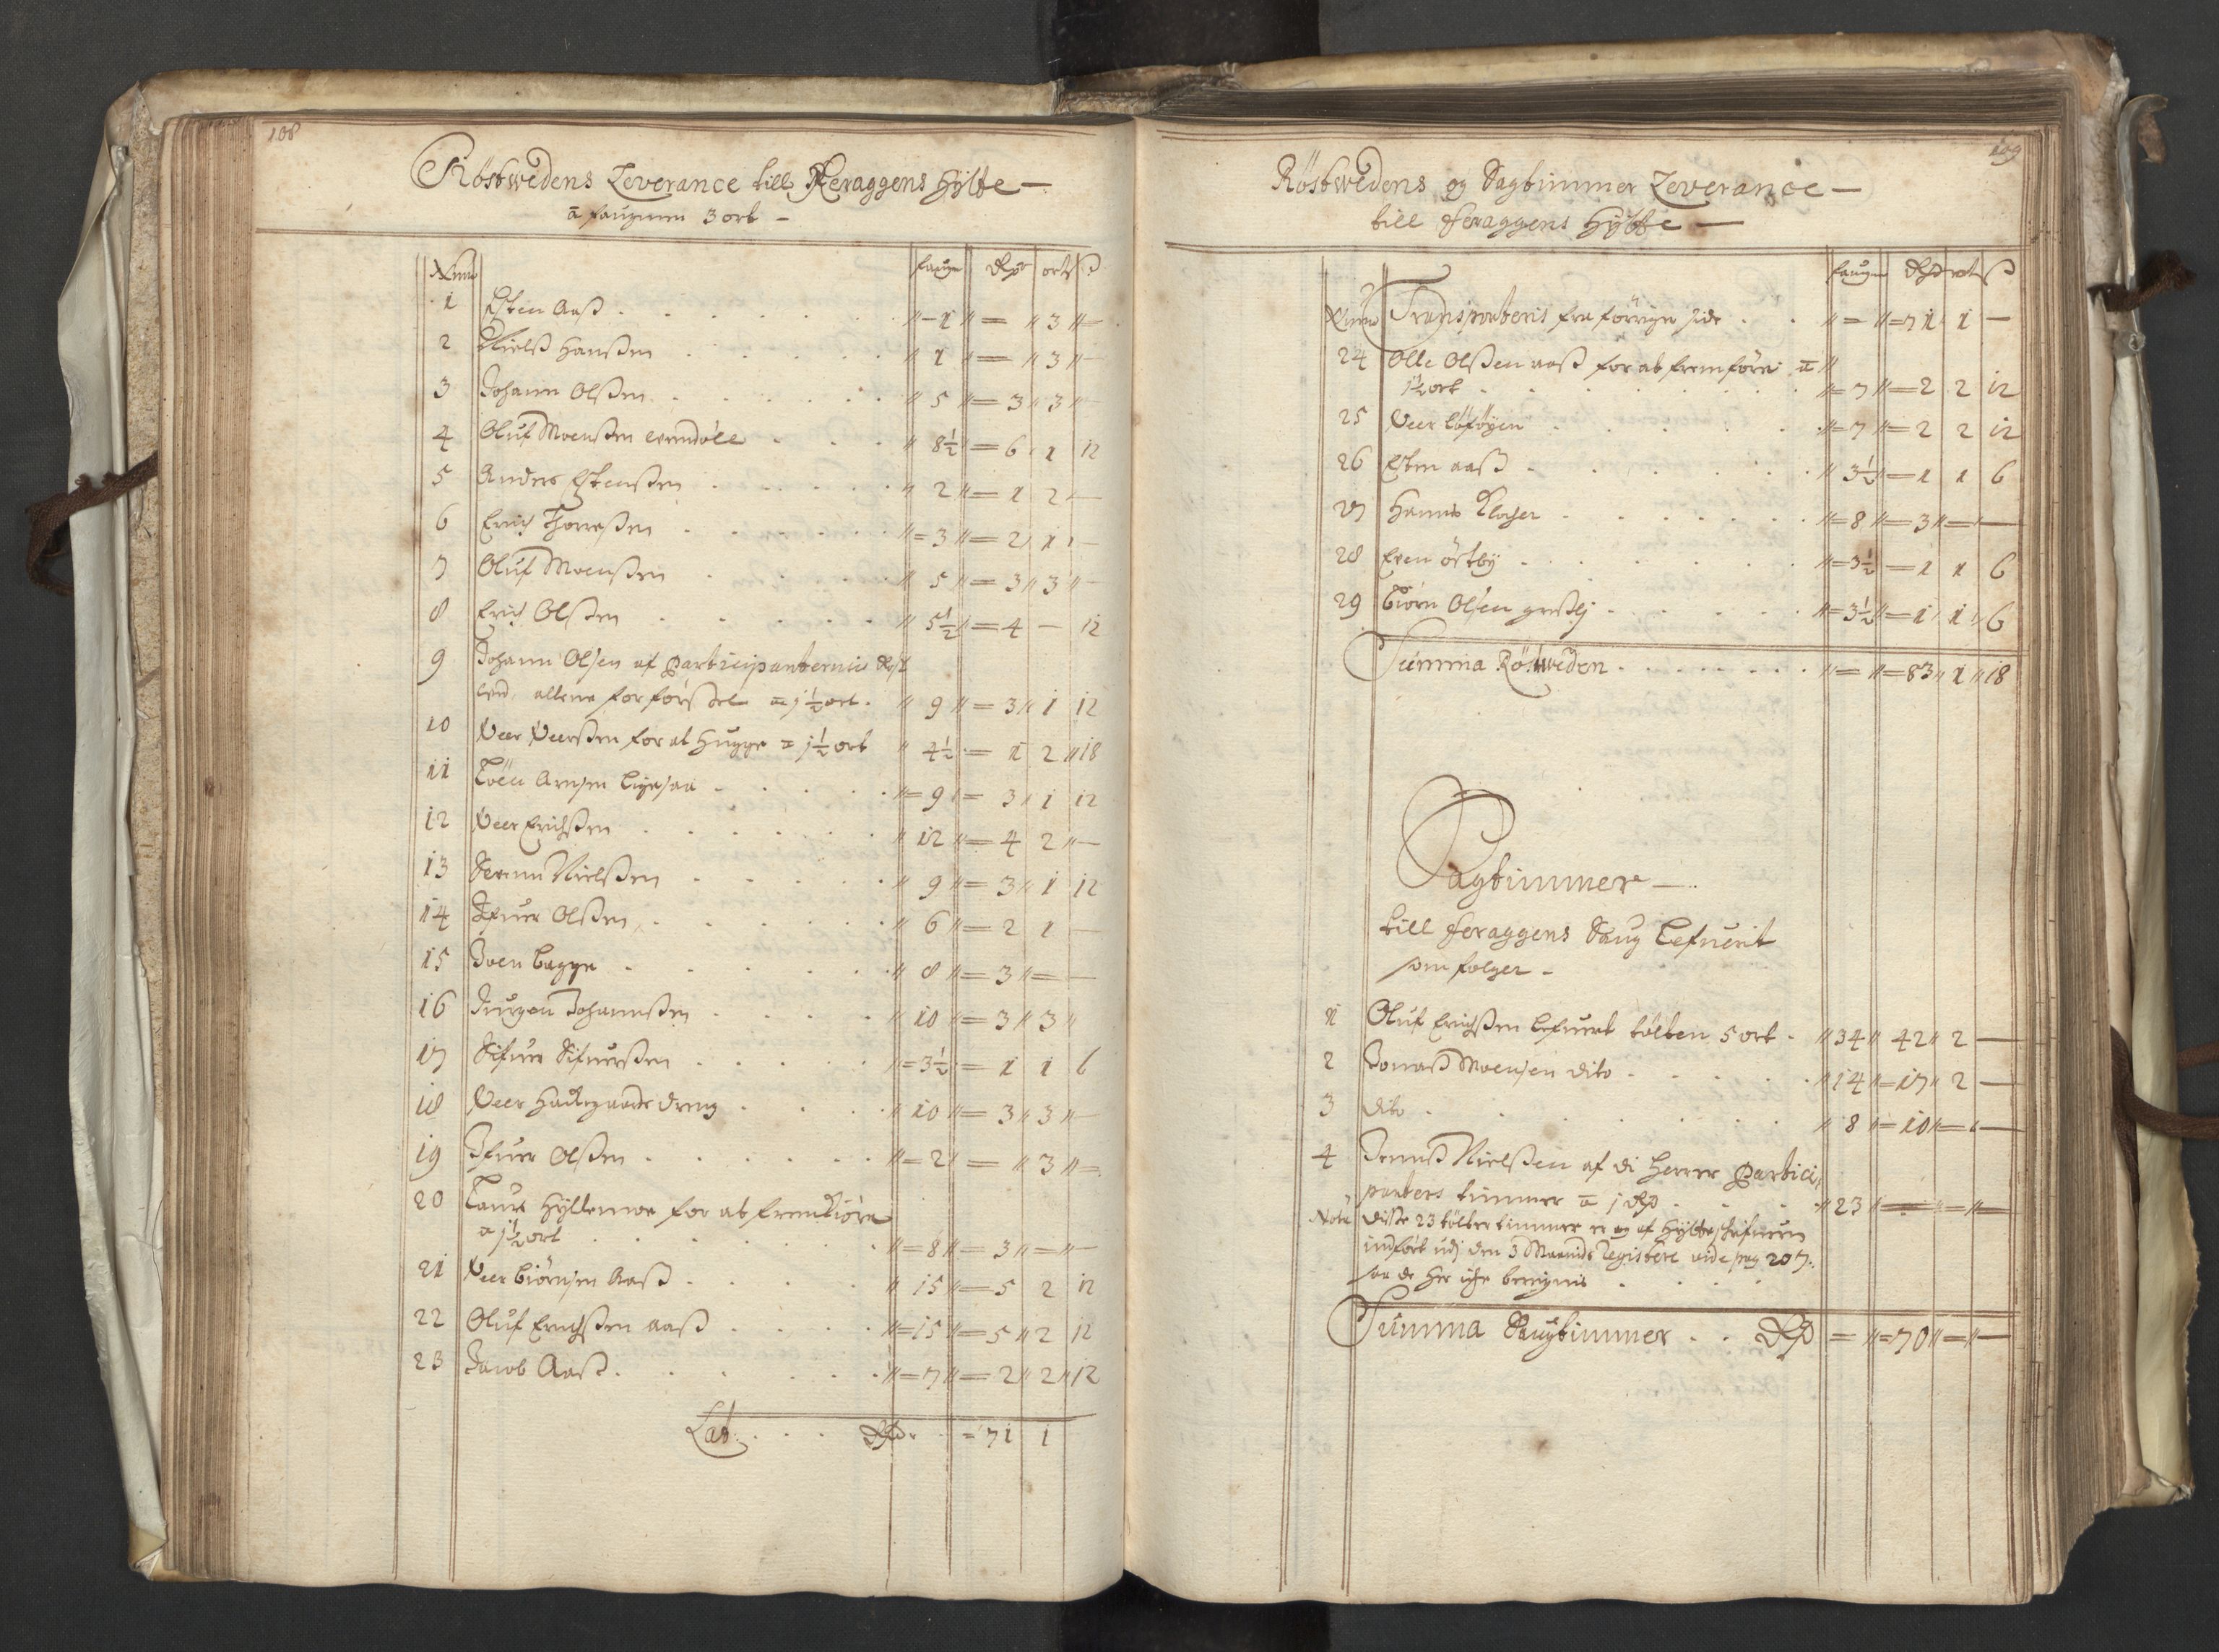 108
Röstwedens Leverance till Feraggens Hytte —
a faugnen 3 ort —
Num faugn Rdr ort ß
1 Esten Aaß . . . . . . . " – 1 " = " 3 " —
2 Nielß Hanßen . . . . . . " 1 " = " 3 " —
3 Johann Olßen . . . . . . " 5 " = 3 " 3 " —
4 Oluf Moenßen . . . " 8½ = 6 1 12
5 Anders Estenßen . . . . . " 2 " = 1 2 —
6 Erich Thoreßen . . . . . " = 3 " = 2 1 —
7 Oluf Moenßen . . . . . " 5 " = 3 " 3 " —
8 Erich Olßen . . . . . . " 5½ " = 4 — 12
9 Johann Olsen af Participanternis Röst
wed, allene for förßel a 1½ ort . " 9 " = 3 " 1 12
10 Peer Peerßen for at Hugge a 1½ ort " 4½ = 1 2 " 18
11 Toen Arnsen . . . . . " = 9 " = 3 " 1 12
12 Peer Erichßen . . . . . . " 12 " = 4 2 " —
13 Nielßen . . . . . " 9 " = 3 " 1 12
14 Ifuer Olßen . . . . . . " 6 " = 2 1 —
15 Joen Bagge . . . . . . " 8 " = 3 " = —
16 Jurgen Johannßen . . . . " 10 " = 3 " 3 "
17 Sifuer Sifuerßen . . . . . " = 3½ = 1 1 6
18 Peer dreng . . . " 10 " = 3 " 3 " —
19 Ifuer Olßen . . . . . . " = 2 " = " 3 " =
20 Laurs Hyttemoe for at fremkiöre
a 1½ ort . . . . . . . " = 8 " = 3 " = " —
21 Peer Biörnsen Aaß . . . . " 15 " = 5 2 12
22 Oluf Erichßen aaß . . . . " = 15 " = 5 " 2 12
23 Jacob Aaß . . . . . . " = 7 " = 2 " 2 " 12
Lat: . . . Rdr . . = 71 1
109
Röstwedens og Sagtimmer Leverance —
till Feraggens Hytte —
faugn Rdr ort ß
Num Transporteris fra förrige side . . " = " = 71 1 —
24 Olle Olßen aaß for at fremföre a "
1½ ort . . . . . . . " = 7 " = 2 2 12
25 Peer . . . . . . " = 7 " = 2 2 12
26 Esten aaß . . . . . . " 3½ " = 1 1 6
27 Hanns Kloger . . . . . . " = 8 " = 3 " = " —
28 Even östby . . . . . . " = 3½ = 1 1 6
29 Biörn Olsen . . . . . " = 3½ " = 1 1 6
Summa Röstweden . . . . . . " = " = 83 " 1 " 18
Sagtimmer — .
till Feraggens Saug Lefuerit
som folger —
1 Oluf Erichßen lefuert tölten 5 ort . " 34 " 42 " 2 —
2 Tomaß Moensen dito . . . . . " 14 " = 17 " 2 —
3 dito . . . . . . . " 8 " = 10 " = " —
4 Jennß Nielßen af di Herrer Partici,
panters timmer a 1 Rdr . . . . " 23 " = " = " =
Nota diße 23 tölter timmer er og af Hytteskrifueren
indfört udj den 3 Maanids Registere vide pag 207:
saa de her iche beregnis . . . .
Summa Saugtimmer . . Rdr = " = 70 " = " —